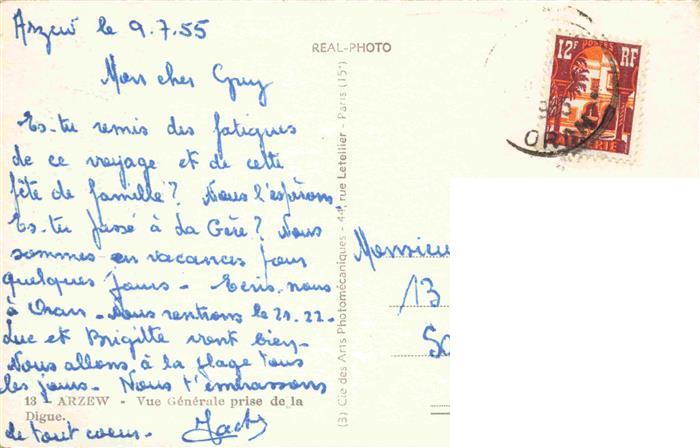 Arzew le 9.7.55
Mon cher Guy
Es-tu remis des fatigues
de ce voyage et de cette
fête de famille? Nous l'espérons.
Es-tu passé à La Gère? Nous
sommes en vacances pour
quelques jours - Ecris-nous
à Oran - Nous rentrons le 21.22.
Luc et Brigitte vont bien.
Nous allons à la plage tous
les jours - Nous t'embrassons
13 - ARZEW - Vue Générale prise de la
Digue.
de tout coeur. Jacky
REAL-PHOTO
(3) Cie des Arts Photomécaniques - 44, rue Letellier - Paris (15e)
12F POSTES RF
ORAN
Monsieur
13